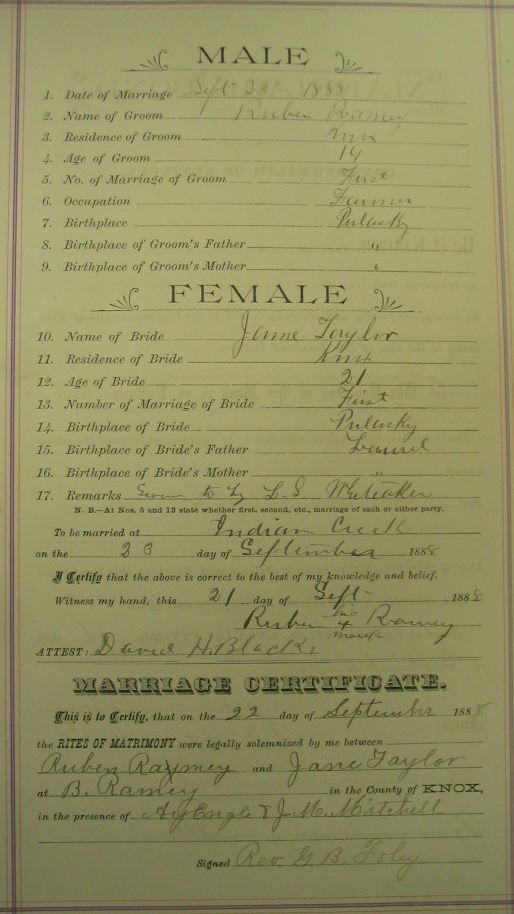 MALE
1. Date of Marriage Sept 23d 1888
2. Name of Groom Ruben Ramey
3. Residence of Groom Knx
4. Age of Groom 19
5. No. of Marriage of Groom First
6. Occupation Farmer
7. Birthplace Pulasky
8. Birthplace of Groom's Father "
9. Birthplace of Groom's Mother "
FEMALE
10. Name of Bride Jane Taylor
11. Residence of Bride Knx
12. Age of Bride 21
13. Number of Marriage of Bride First
14. Birthplace of Bride Pulasky
15. Birthplace of Bride's Father Laurel
16. Birthplace of Bride's Mother "
17. Remarks Sworn to by L.S. Whiteaker
N. B.—At Nos. 5 and 13 state whether first, second, etc., marriage of each or either party.
To be married at Indian Creek
on the 23 day of September 1888
I Certify that the above is correct to the best of my knowledge and belief.
Witness my hand, this 21 day of Sept 1888
Ruben his x mark Ramey
ATTEST: David H. Black,
MARRIAGE CERTIFICATE.
This is to Certify, that on the 22 day of September 1888
the RITES OF MATRIMONY were legally solemnized by me between
Ruben Raymey and Jane Taylor
at B. Ramey in the County of KNOX,
in the presence of Engle & J. M. Mitchell
Signed Rev. G. B. Foley